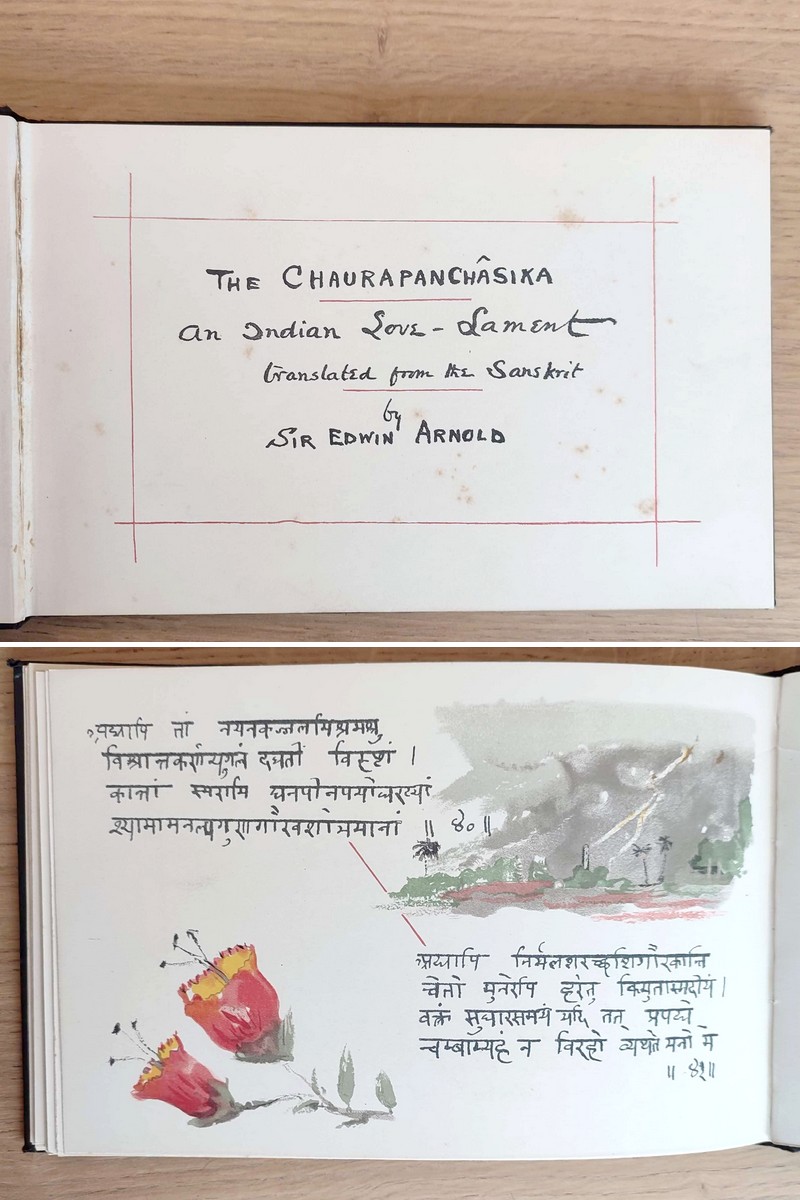 THE CHAURAPANCHÂSIKA
An Indian Love-Lament
translated from the Sanskrit
by
SIR EDWIN ARNOLD
तां नयनकज्जलमिश्रमश्रु
विश्रान्तकर्णयुगलं दधतीं विसृष्टं ।
कान्तां स्मरामि घनपीनपयोधराभ्यां
॥ ४० ॥
निर्मलशरच्छशिगौरकान्ति
चेतो मुनेरपि हरेत् किमुतास्मदीयं ।
वक्त्रं सुधारसमयं यदि तत् प्रपद्ये
चुम्बाम्यहं न विरहो व्यथते मनो मे
॥ ४१ ॥